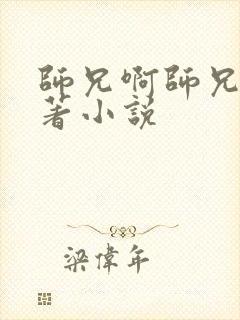 師兄啊師兄
著小說
梁偉年